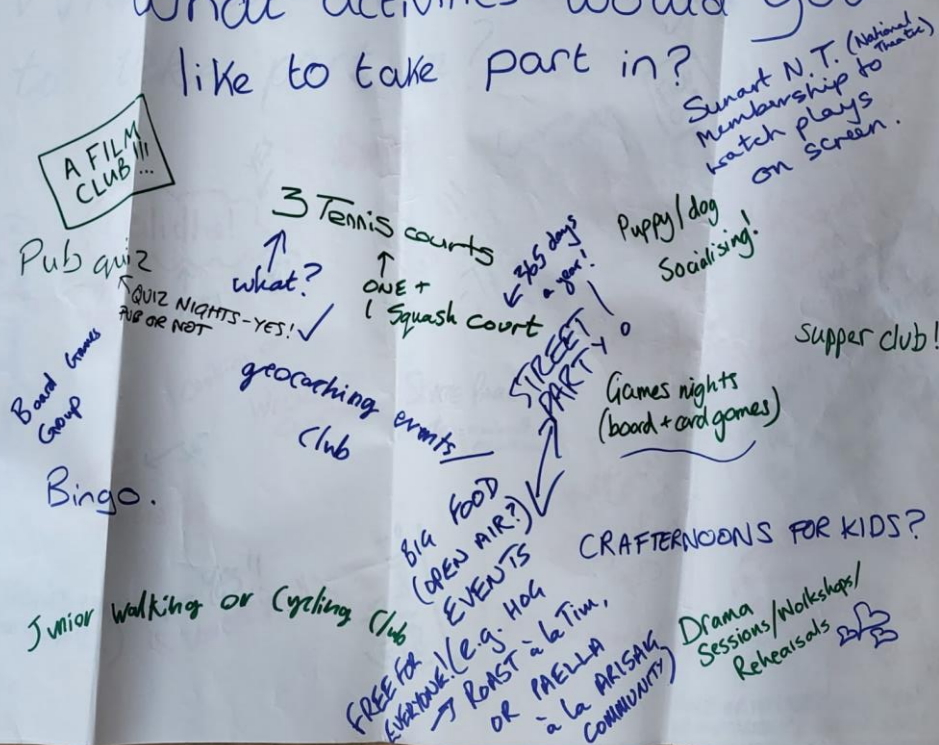 What activities would you
like to take part in?
Sunart N.T. (National
Theatre)
Membership to
watch plays
on screen.
A FILM
CLUB!!!...
3 Tennis courts
what?
ONE +
1 Squash court
Pub quiz
QUIZ NIGHTS-YES! ✓
PUB OR NOT
← 365 days
a year!
STREET
PARTY!
Puppy/dog
Socialising!
Supper club!
Board Games
Group
geocaching events
Club
Games nights
(board + card games)
Bingo.
BIG FOOD
(OPEN AIR?)
EVENTS
FREE FOR
EVERYONE! (e.g. HOG
→ ROAST à la Tim,
OR PAELLA
à la ARISAIG
COMMUNITY)
CRAFTERNOONS FOR KIDS?
Junior Walking or Cycling Club
Drama
Sessions/Workshops/
Rehearsals